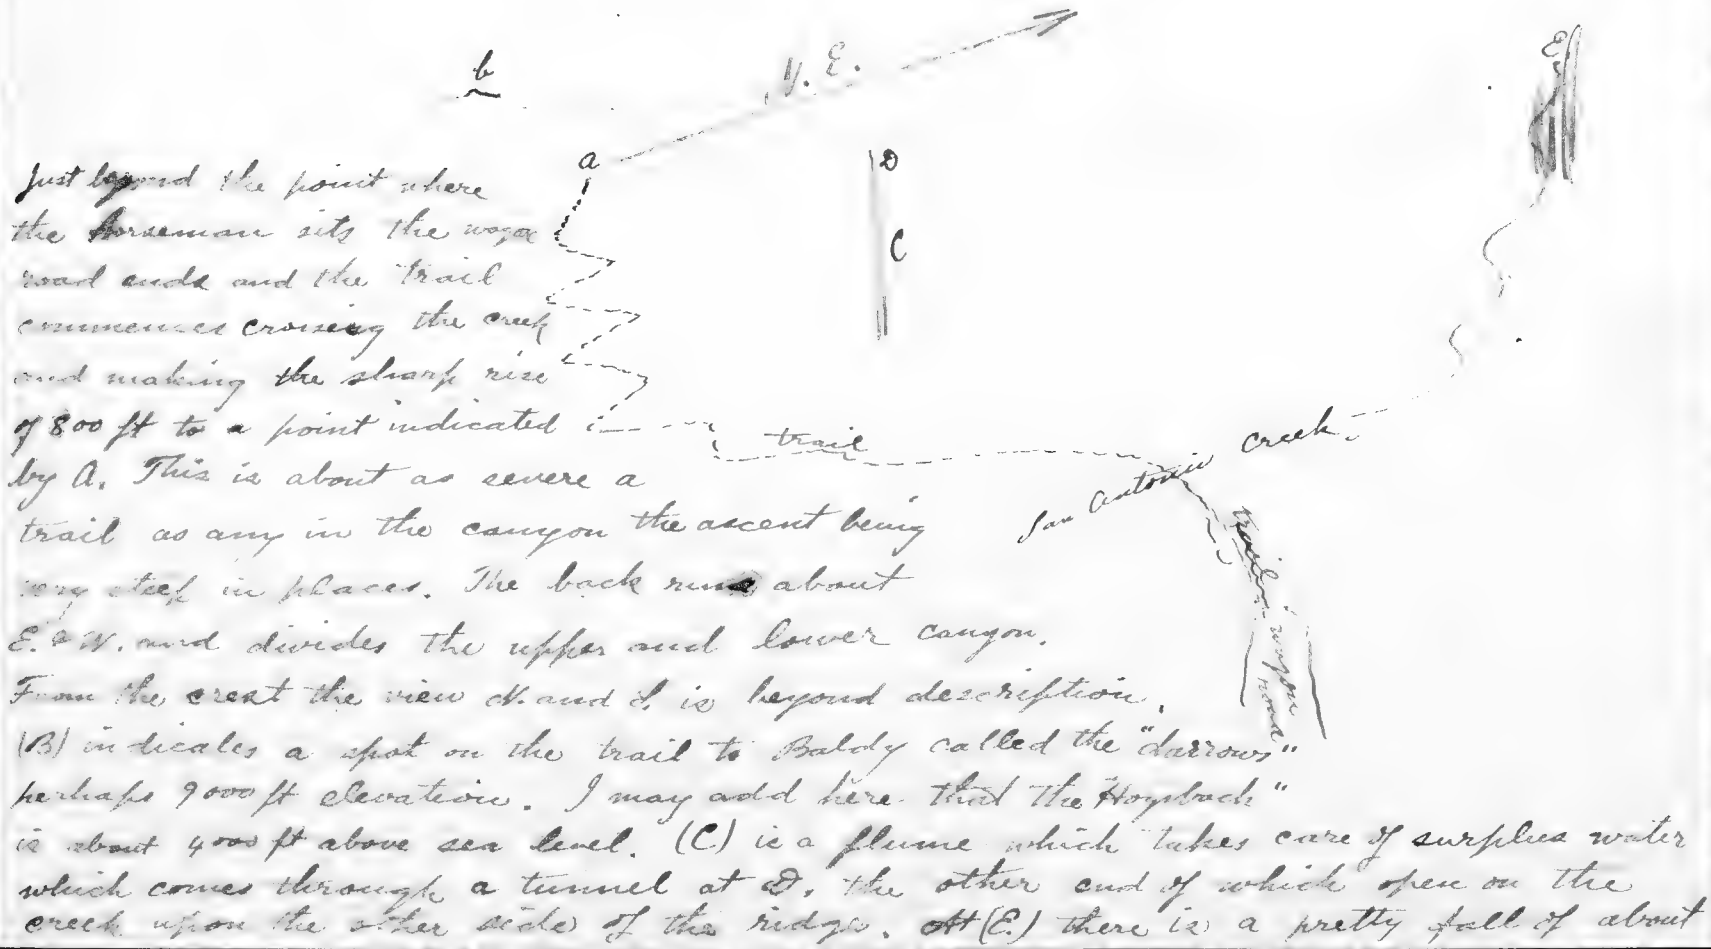 b
N. E.
E
a
D
C
Just beyond the point where
the horseman sits the wagon
road ends and the trail
commences crossing the creek
and making the sharp rise
of 800 ft to a point indicated
by A. This is about as severe a
trail as any in the canyon the ascent being
very steep in places. The back runs about
E. & W. and divides the upper and lower canyon.
From the crest the view N. and S. is beyond description.
(B) indicates a spot on the trail to Baldy called the "darrows"
perhaps 9000 ft elevation. I may add here that the "Hogsback"
is about 4000 ft above sea level. (C) is a flume which takes care of surplus water
which comes through a tunnel at D. the other end of which open on the
creek upon the other side of the ridge. At (E.) there is a pretty fall of about
trail
San Antonio Creek.
trail
wagon
road